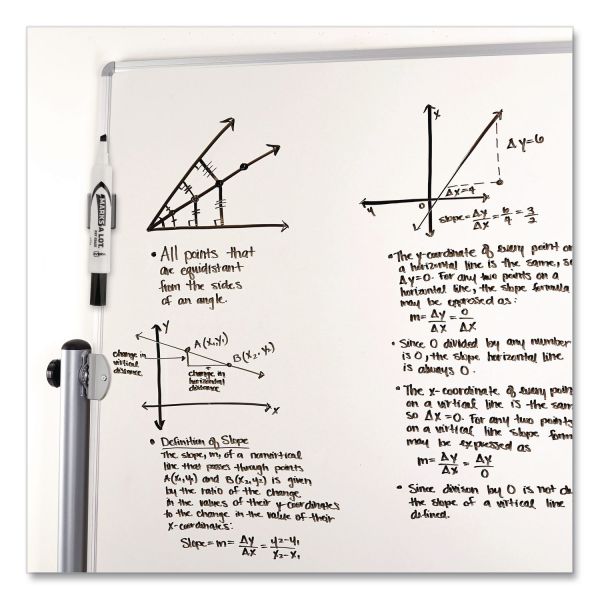 MARKS A LOT
• All points that
are equidistant
from the sides
of an angle.
Y
A (X₁,Y₁)
B (X₂, Y₂)
change in
virtical
distance
change in
horizontal
distance
X
• Definition of Slope
The slope, m, of a nonvirtical
line that passes through points
A(X₁,Y₁) and B(X₂,Y₂) is given
by the ratio of the change
in the values of their y-coordinates
to the change in the value of their
X-coordinates:
Slope = m = ΔY/ΔX = y₂-y₁/X₂-X₁
X
ΔY=6
ΔX=4
y
0
slope = ΔY/ΔX = 6/4 = 3/2
• The y-coordinate of every point on
a horizontal line is the same, so
ΔY=0. For any two points on a
horizontal line, the slope formula
may be expressed as:
m = ΔY/ΔX = 0/ΔX
• Since 0 divided by any number
is 0, the slope horizontal line
is always 0.
• The x-coordinate of every poin
on a virtical line is the sam
so ΔX=0. For any two points
on a virtical line slope form
may be expressed as
m = ΔY/ΔX = ΔY/0
• Since divison by 0 is not de
the slope of a virtical line
defined.